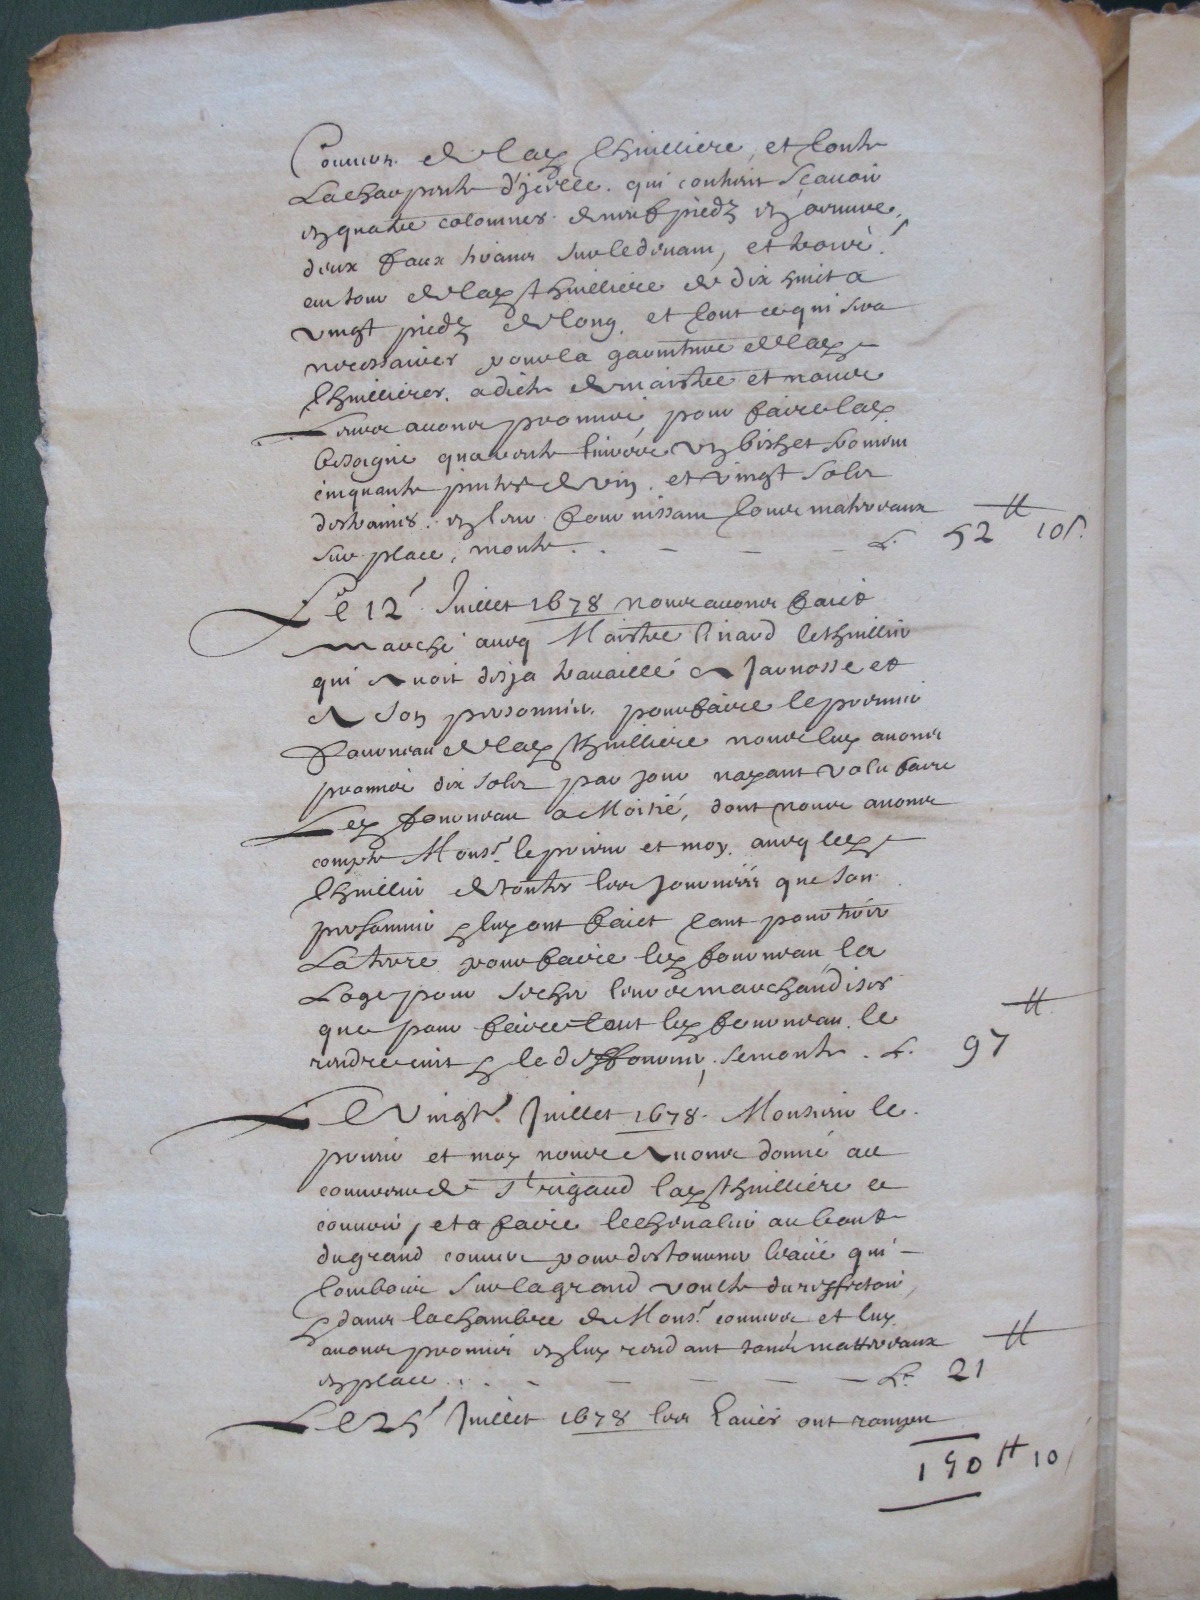 Couuers de lad. thuilliere, et toute
La charpente d'jcelle. qui contient sçauoir
quatre colomnes de neuf piedz en œuure,
deux faux tirans sur le deuant, et trois
autour de lad. thuilliere de dix huit a
vingt piedz de long. et tout ce qui sera
necessaires pour la garniture de lad.
thuillieres. a dict de maistre et nous
Leurs auons promis, pour faire lad.
besoigne quarente liures un bichet froment
cinquante pintes de vin. et vingt solz
destraines. en leur fournissant tous matereaux
sur place, monte . . — — — L. 52 ₶ 10 s.
Le 12e Juillet 1678 nous auons faict
marché auecq Maistre linard le thuillier
qui auoit desja trauaillé a Jarnosse et
a son personnier. pour faire le premier
fourneau de lad. thuilliere nous luy auons
promis dix solz par jour nayant volu faire
Led. fourneau a Moitié, dont nous auons
compte Monsr. le prieur et moy. auecq led.
thuillier de toutes les journées que son
personnier & luy ont faict tant pour tirer
La terre pour faire led. fourneau la
Loge pour secher leurs marchandises
que pour faire tout led. fourneau. le
rendre cuit & le deffourner, se monte . L. 97 ₶
Le Vingte Juillet 1678. Monsieur le
prieur et moy nous auons donné au
couureur de St rigaud lad. thuilliere a
couurir, et a faire le cheualier au bout
du grand couuert pour destourner leau qui
tomboit sur la grand voute du reffectoir,
& dans la chambre de Monsr. et luy
auons promis en luy rendant tous matereaux
en place . . . — — — — L. 21 ₶
Le 25e Juillet 1678 les ont rompu
190 ₶ 10